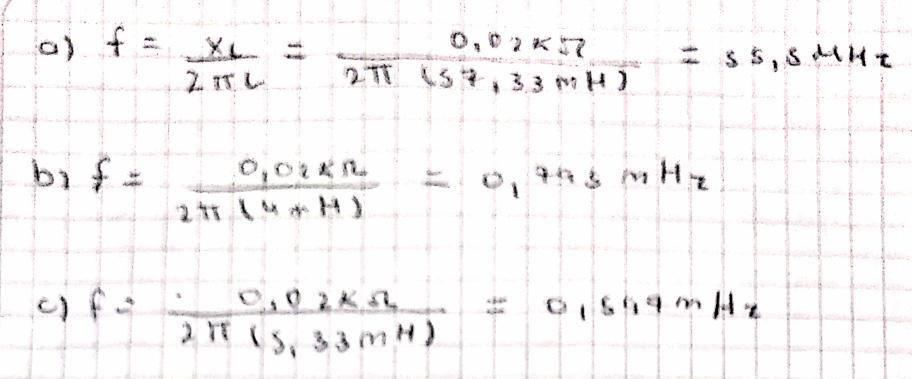 a) f = XL / 2πL = 0,02KΩ / 2π (57,33mH) = 55,5 MHz
b) f = 0,02KΩ / 2π (4 H) = mHz
c) f = 0,02KΩ / 2π (5,33mH) = mHz